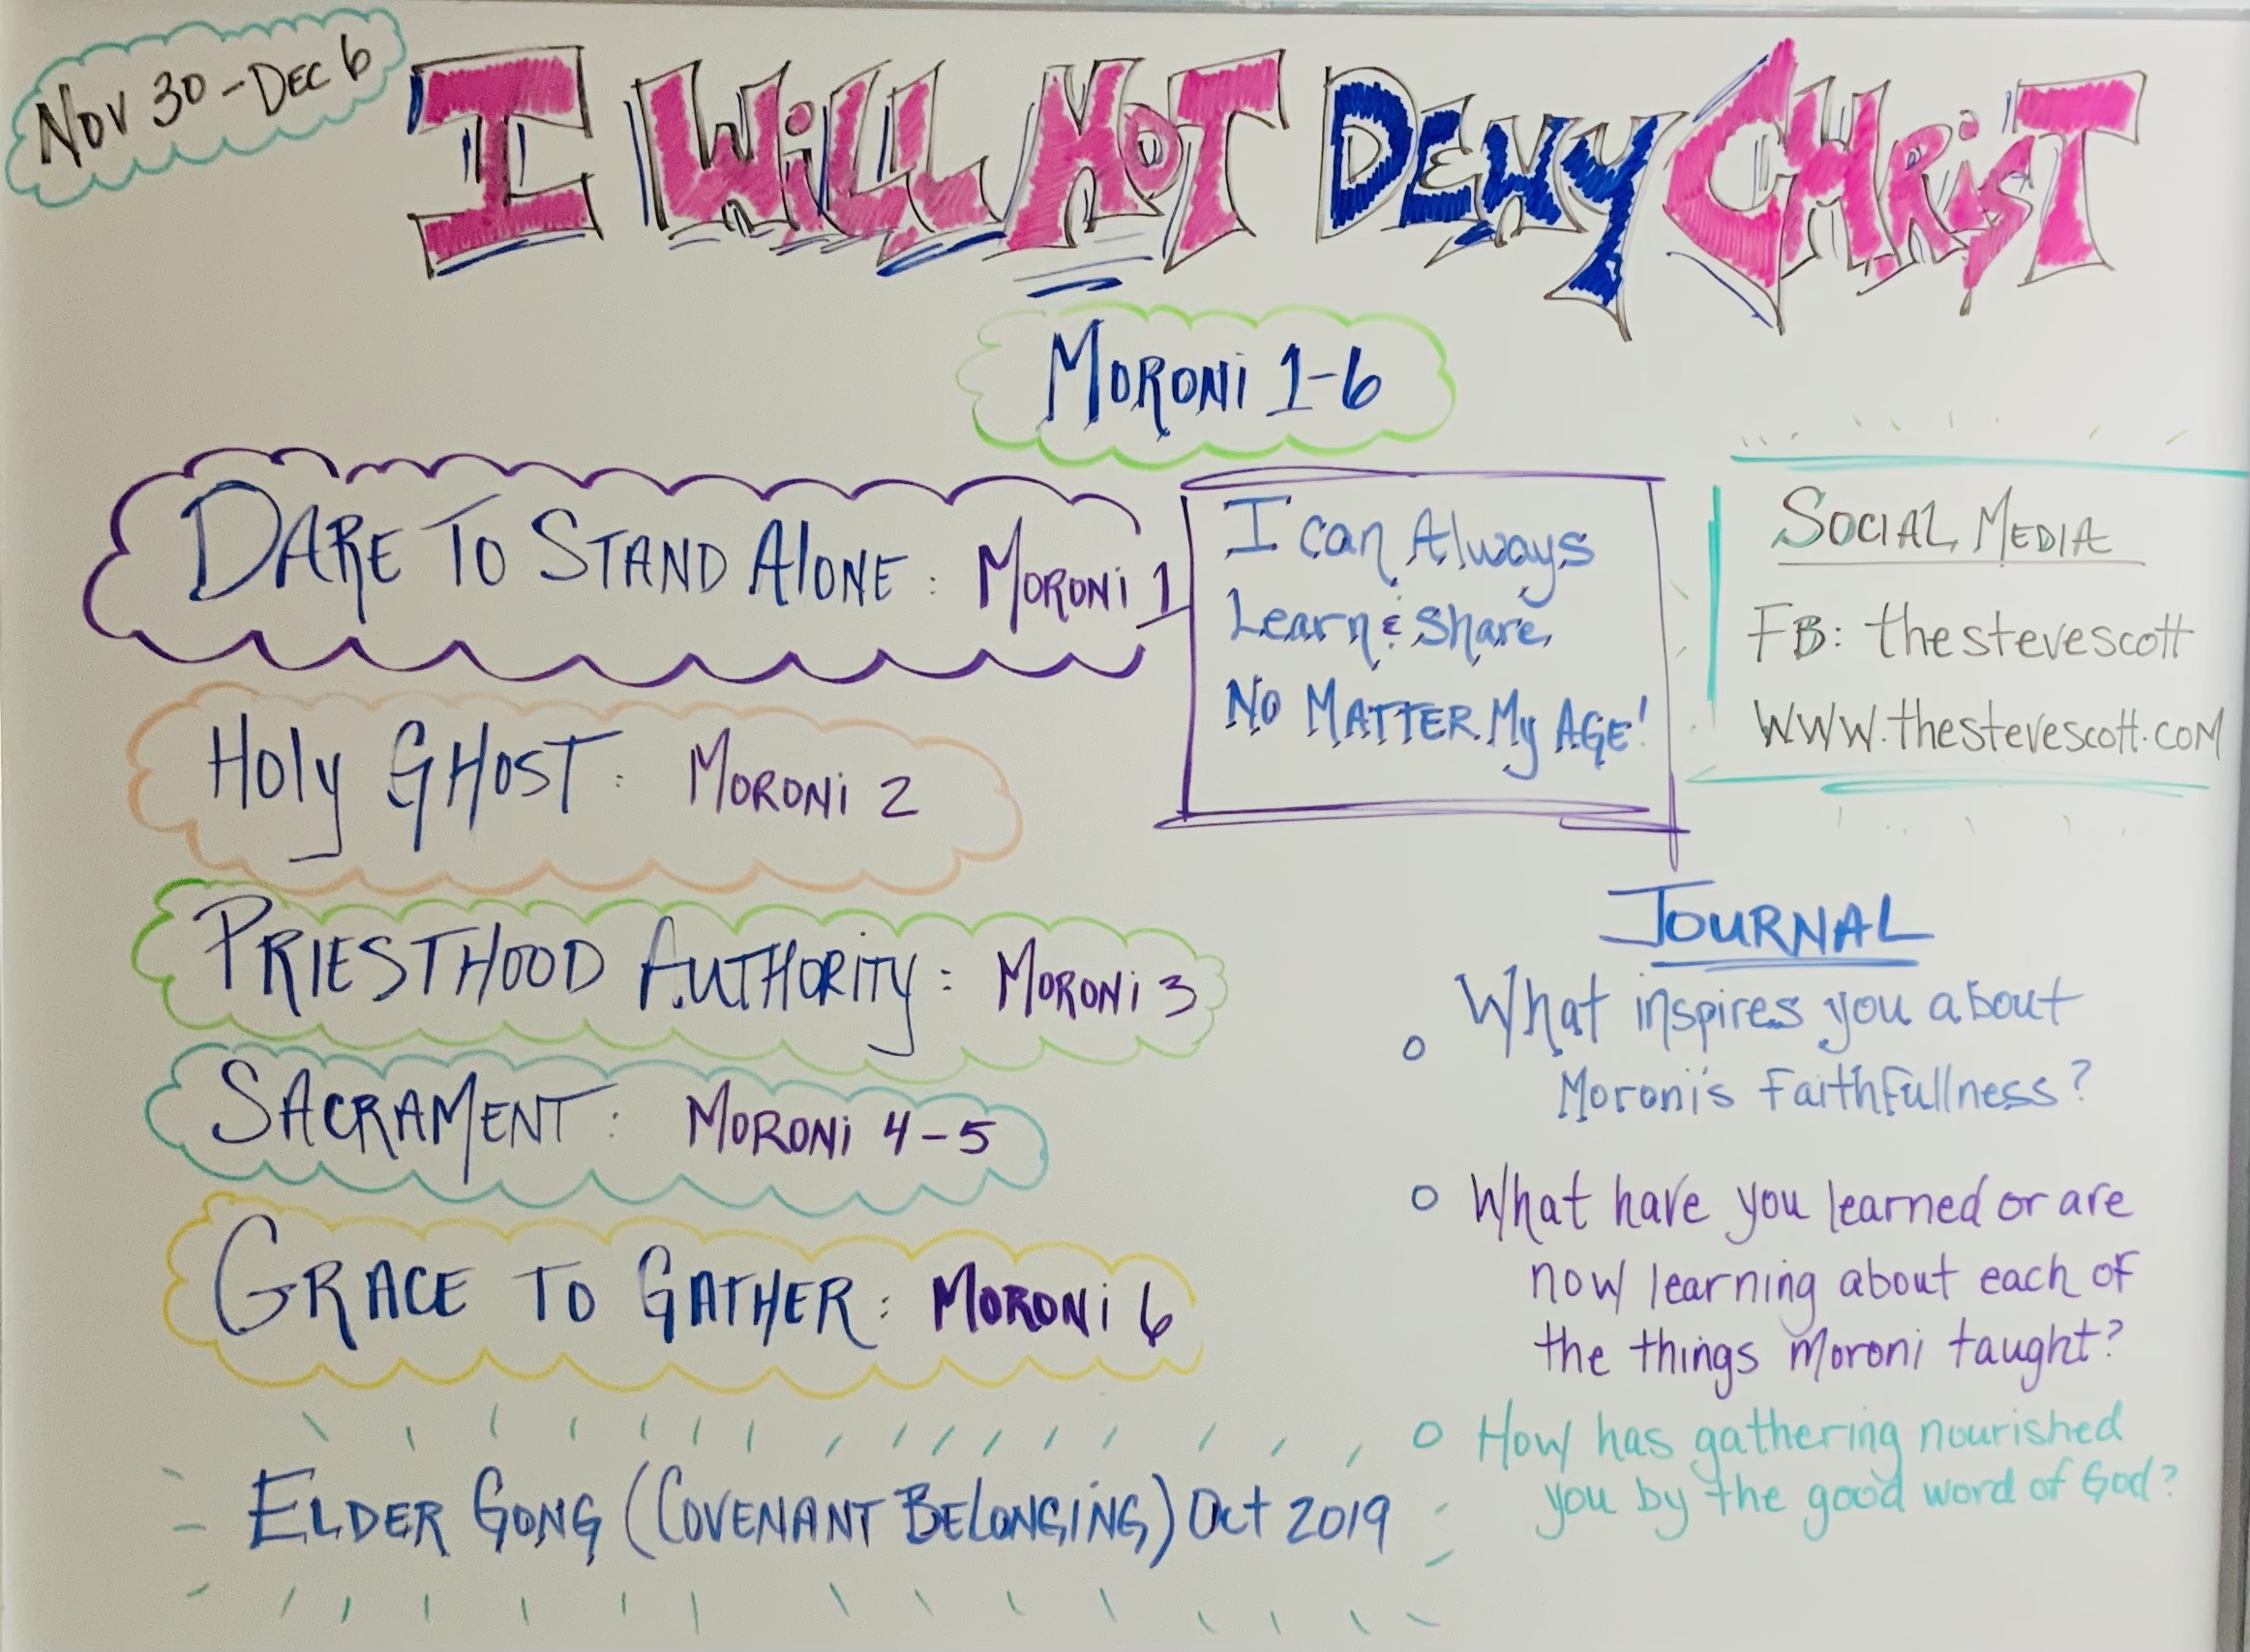 Nov 30 - Dec 6
I Will Not Deny Christ
Moroni 1-6
Dare To Stand Alone: Moroni 1
Holy Ghost: Moroni 2
Priesthood Authority: Moroni 3
Sacrament: Moroni 4-5
Grace to Gather: Moroni 6
Elder Gong (Covenant Belonging) Oct 2019
I can Always
Learn & Share,
No Matter My Age!
Social Media
FB: thestevescott
www.thestevescott.com
Journal
o What inspires you about
Moroni's Faithfullness?
o What have you learned or are
now learning about each of
the things Moroni taught?
o How has gathering nourished
you by the good word of God?